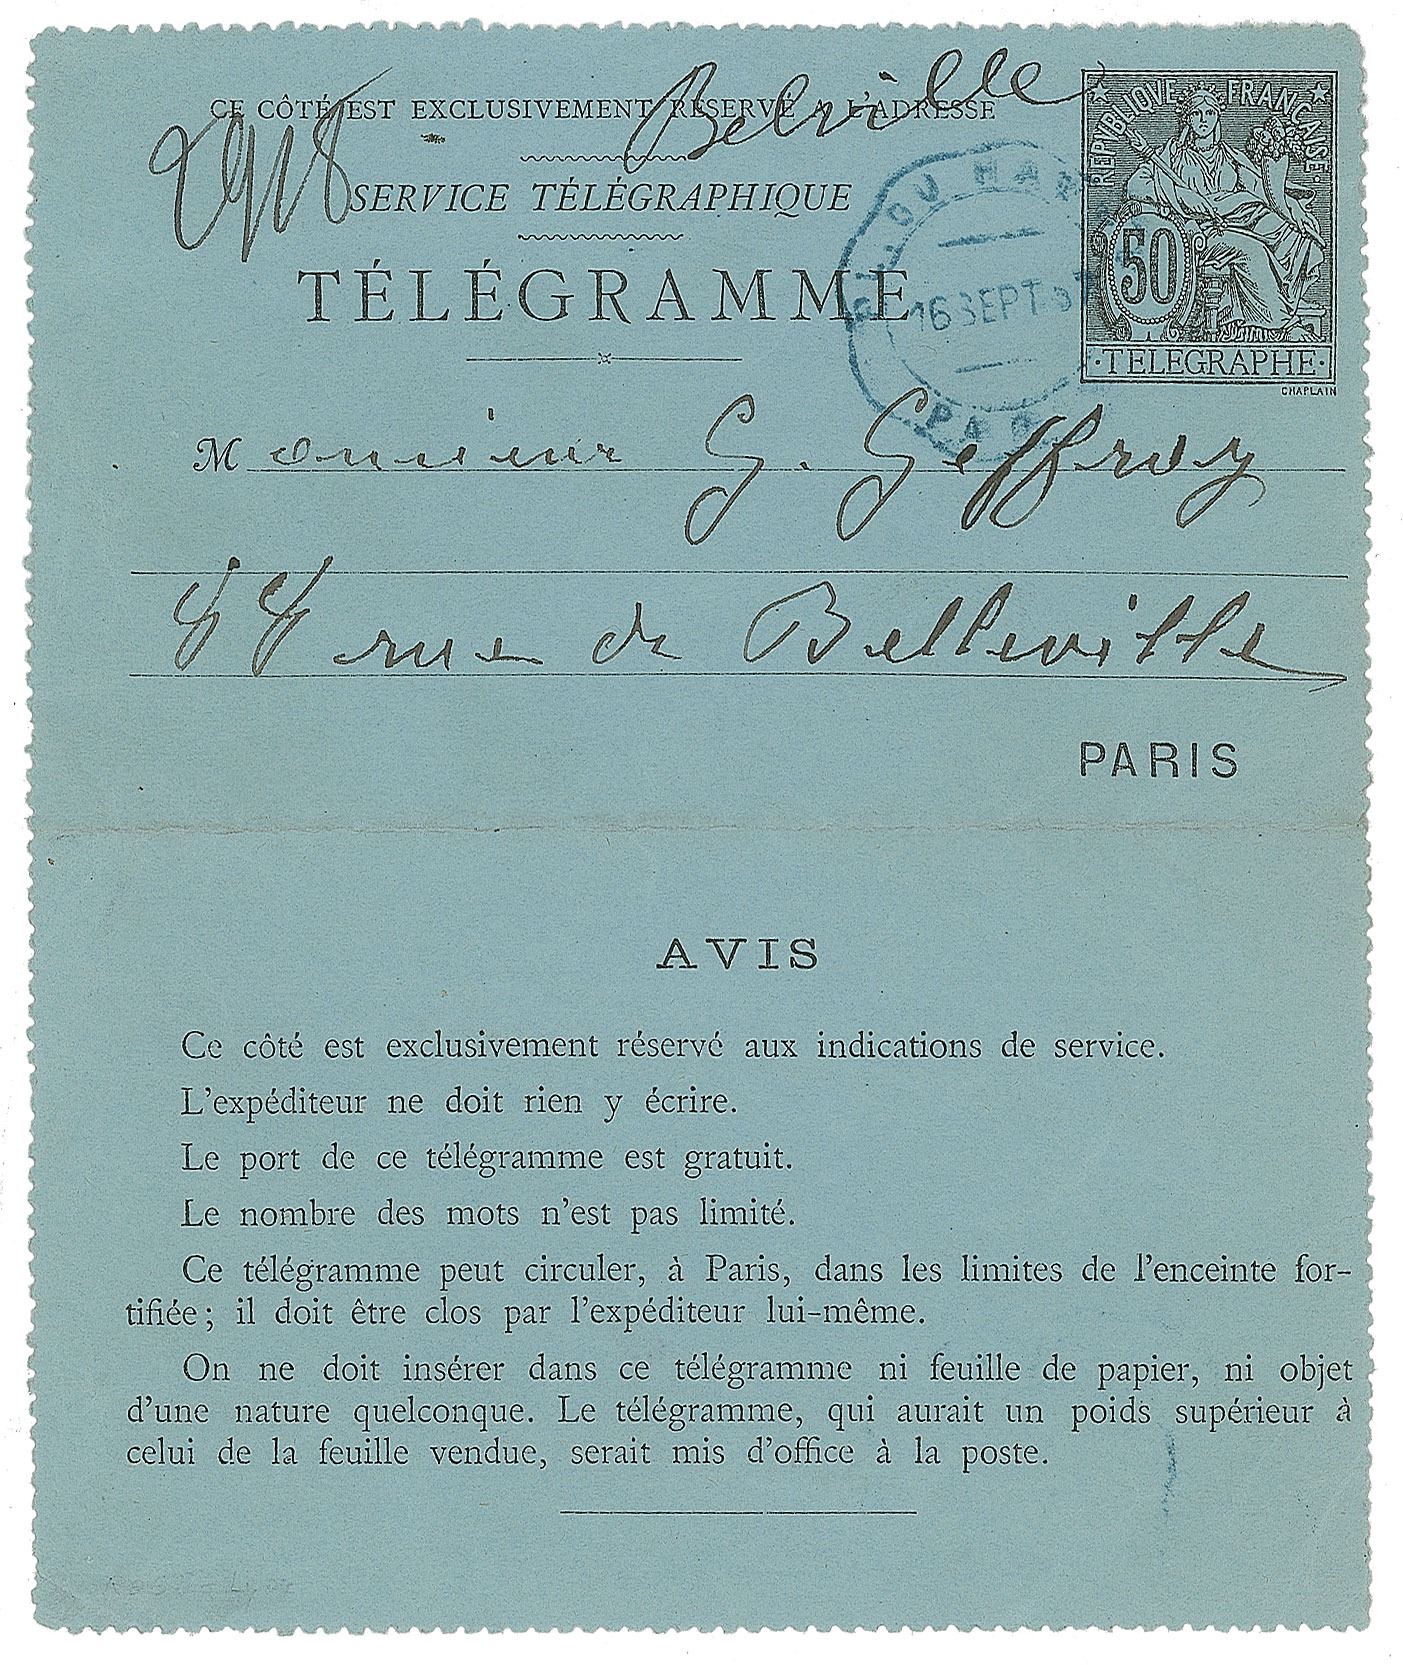 Belville
CE CÔTÉ EST EXCLUSIVEMENT RÉSERVÉ A L'ADRESSE
SERVICE TÉLÉGRAPHIQUE
TÉLÉGRAMME
REPVBLIQVE FRANÇAISE
50
·TELEGRAPHE·
CHAPLAIN
16 SEPT
Monsieur G. Geffroy
rue de Belleville
PARIS
AVIS
Ce côté est exclusivement réservé aux indications de service.
L'expéditeur ne doit rien y écrire.
Le port de ce télégramme est gratuit.
Le nombre des mots n'est pas limité.
Ce télégramme peut circuler, à Paris, dans les limites de l'enceinte for-
tifiée; il doit être clos par l'expéditeur lui-même.
On ne doit insérer dans ce télégramme ni feuille de papier, ni objet
d'une nature quelconque. Le télégramme, qui aurait un poids supérieur à
celui de la feuille vendue, serait mis d'office à la poste.